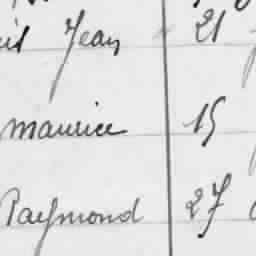 Jean 21
Maurice 15
Raymond 27